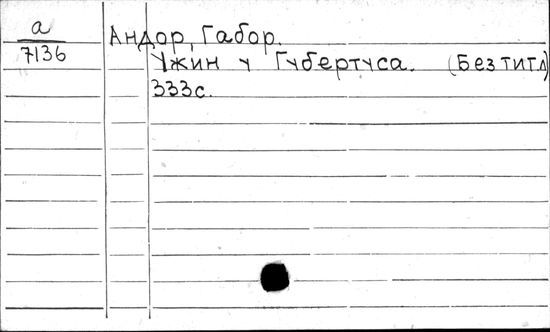 а
7136
Андор, Габор.
Ужин у Губертуса. (Без титл)
333с.